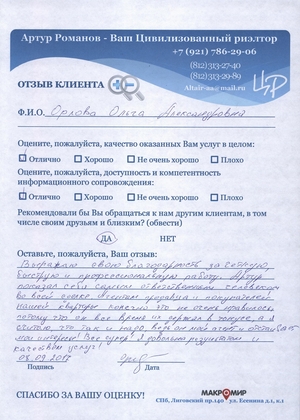 Артур Романов - Ваш Цивилизованный риэлтор
+7 (921) 786-29-06
(812)313-27-40
(812)313-29-89
Altair-aa@mail.ru
ЦР
ОТЗЫВ КЛИЕНТА
Ф.И.О. Орлова Ольга Александровна
Оцените, пожалуйста, качество оказанных Вам услуг в целом:
Отлично Хорошо Не очень хорошо Плохо
Оцените, пожалуйста, доступность и компетентность
информационного сопровождения:
Отлично Хорошо Не очень хорошо Плохо
Рекомендовали бы Вы обращаться к нам другим клиентам, в том
числе своим друзьям и близким? (обвести)
ДА НЕТ
Оставьте, пожалуйста, Ваш отзыв:
Выражаю свою благодарность за
быструю и профессиональную работу. Артур
показал себя самым ответственным человеком
во всей продавца и покупателей
нашей квартиры конечно это не очень нравилось
потому что он все время их держал в тонусе, а я
считаю что так и надо ведь он мой агент и
мои интересы! Все супер! Я довольна результатом и
качеством услуг!
08.09.2017
Подпись Дата
СПАСИБО ЗА ВАШУ ОЦЕНКУ!
МАКРОМИР
СПб, Лиговский пр.140 ул. Есенина д.1, к.1